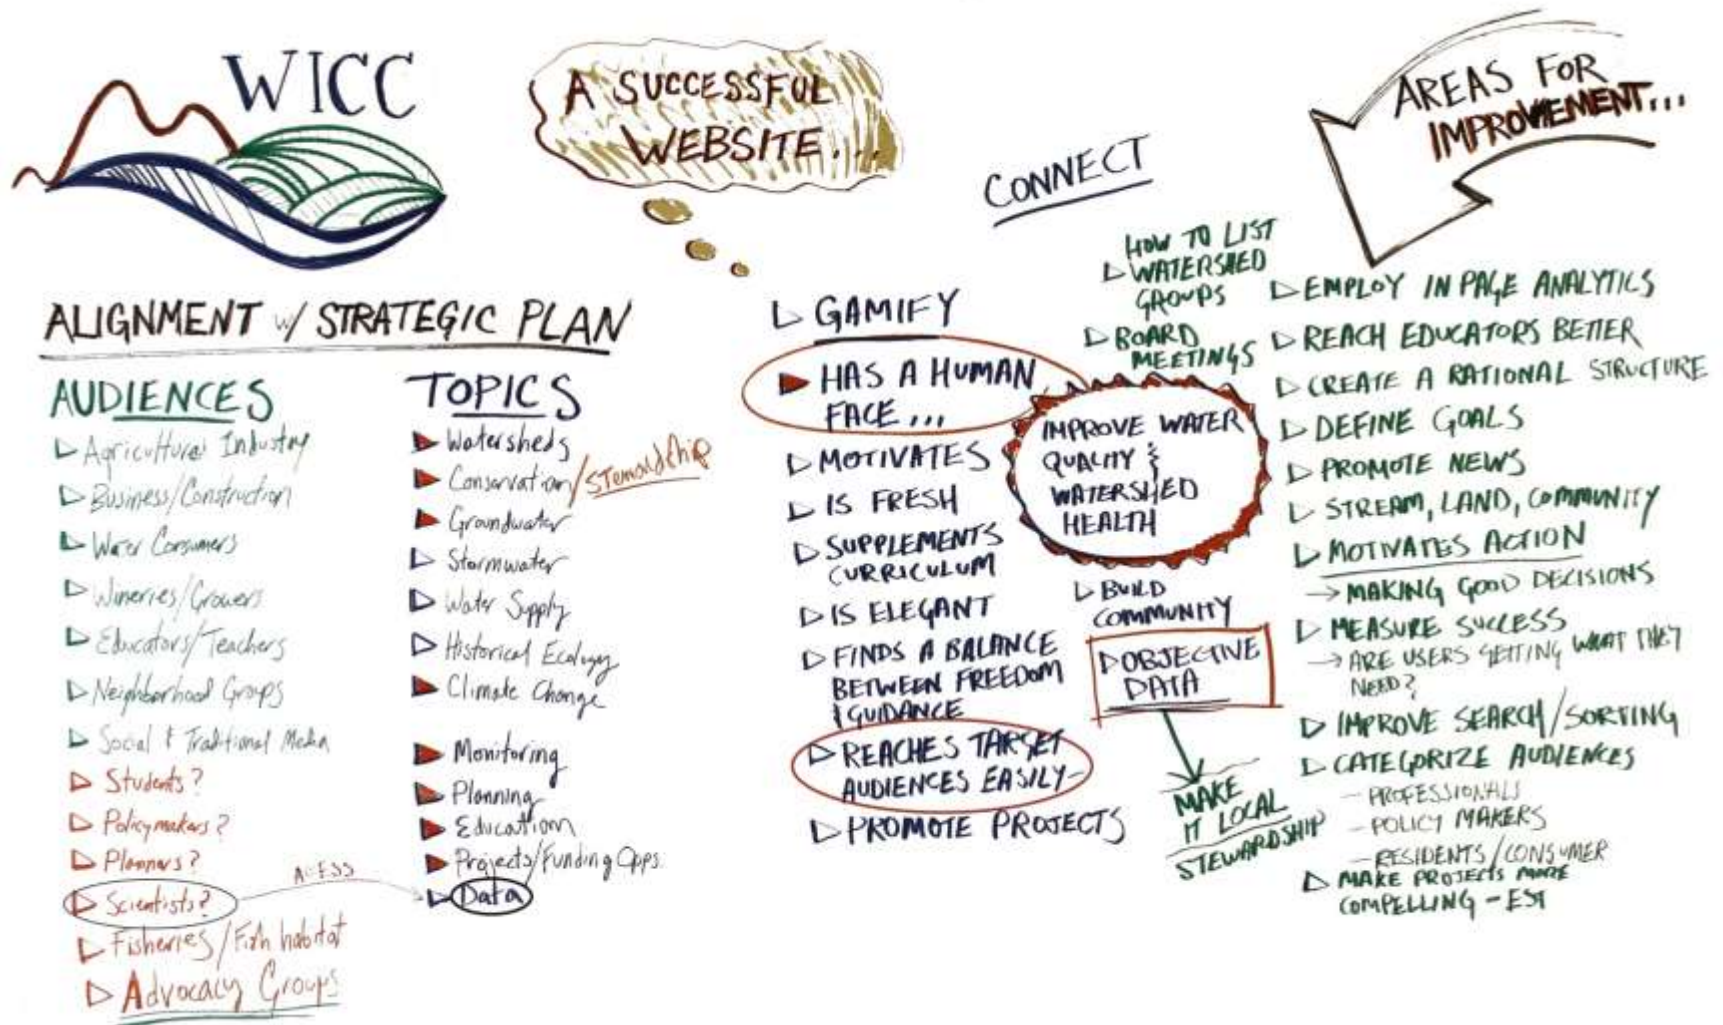 WICC
A SUCCESSFUL
WEBSITE...
AREAS FOR
IMPROVEMENT...
ALIGNMENT w/ STRATEGIC PLAN
AUDIENCES
Agricultural Industry
Business/Construction
Water Consumers
Wineries/Growers
Educators/Teachers
Neighborhood Groups
Social & Traditional Media
Students?
Policymakers?
Planners?
Scientists?
Fisheries/Fish habitat
Advocacy Groups
ACESS
TOPICS
Watersheds
Conservation/Stewardship
Groundwater
Stormwater
Water Supply
Historical Ecology
Climate Change
Monitoring
Planning
Education
Projects/Funding Opps.
Data
GAMIFY
HAS A HUMAN
FACE...
MOTIVATES
IS FRESH
SUPPLEMENTS
CURRICULUM
IS ELEGANT
FINDS A BALANCE
BETWEEN FREEDOM
& GUIDANCE
REACHES TARGET
AUDIENCES EASILY-
PROMOTE PROJECTS
CONNECT
HOW TO LIST
WATERSHED
GROUPS
BOARD
MEETINGS
IMPROVE WATER
QUALITY &
WATERSHED
HEALTH
BUILD
COMMUNITY
OBJECTIVE
DATA
MAKE
IT LOCAL
STEWARDSHIP
EMPLOY IN PAGE ANALYTICS
REACH EDUCATORS BETTER
CREATE A RATIONAL STRUCTURE
DEFINE GOALS
PROMOTE NEWS
STREAM, LAND, COMMUNITY
MOTIVATES ACTION
→ MAKING GOOD DECISIONS
MEASURE SUCCESS
→ ARE USERS GETTING WHAT THEY
NEED?
IMPROVE SEARCH/SORTING
CATEGORIZE AUDIENCES
- PROFESSIONALS
- POLICY MAKERS
- RESIDENTS/CONSUMER
MAKE PROJECTS MORE
COMPELLING - EST